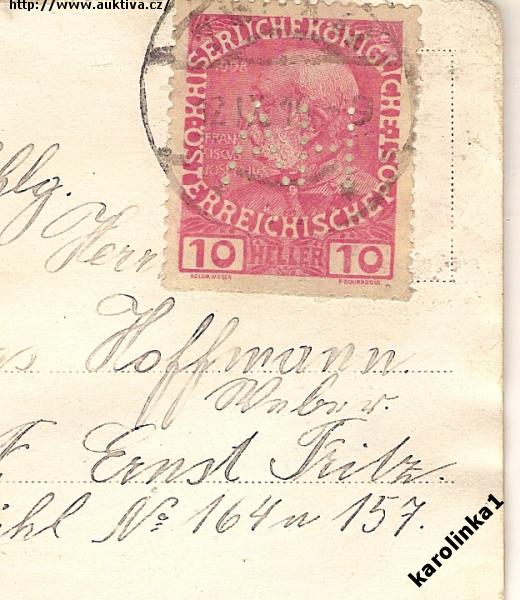 http://www.auktiva.cz/
KAISERLICHE KÖNIGLICHE ÖSTERREICHISCHE POST
1908
FRAN
CISCVS
IOSEPHVS
10 HELLER 10
KOLOM. MOSER
F. SCHIRNBÖCK
Herrn
Hoffmann.
Weber u.
Ernst Fritz.
No 164 u 157.
karolinka1